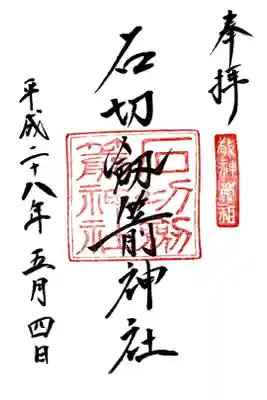 奉拝
敬神崇祖
石切劔箭神社
石切劔箭神社
平成二十八年五月四日